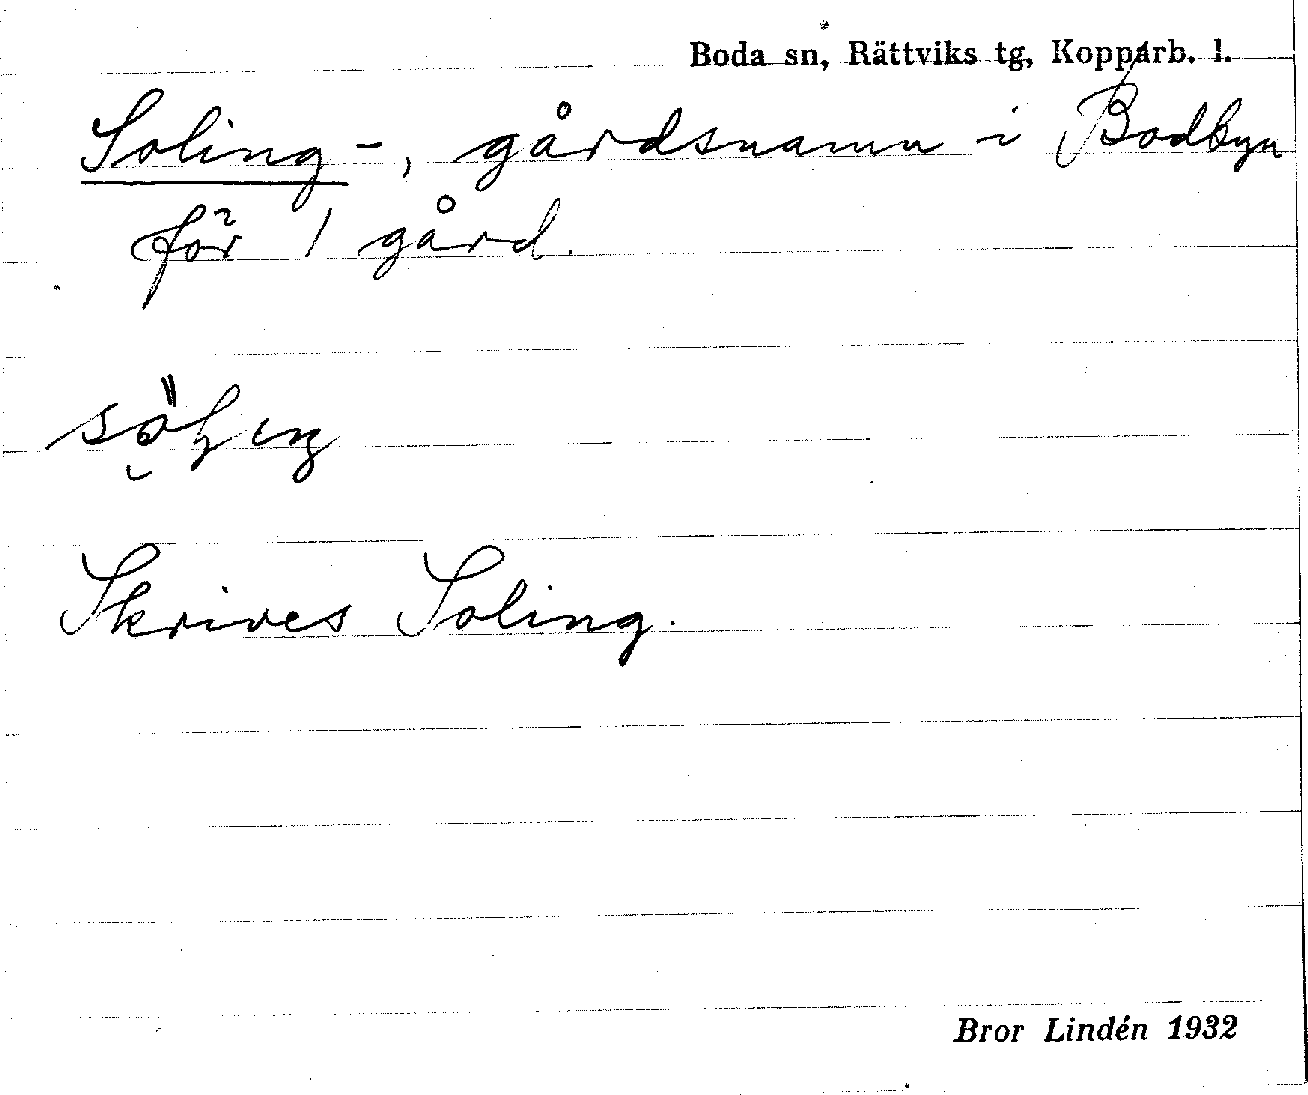 Boda sn, Rättviks tg, Kopparb. l.
Soling -, gårdsnamn i Bodbyn
för 1 gård.
Skrives Soling.
Bror Lindén 1932